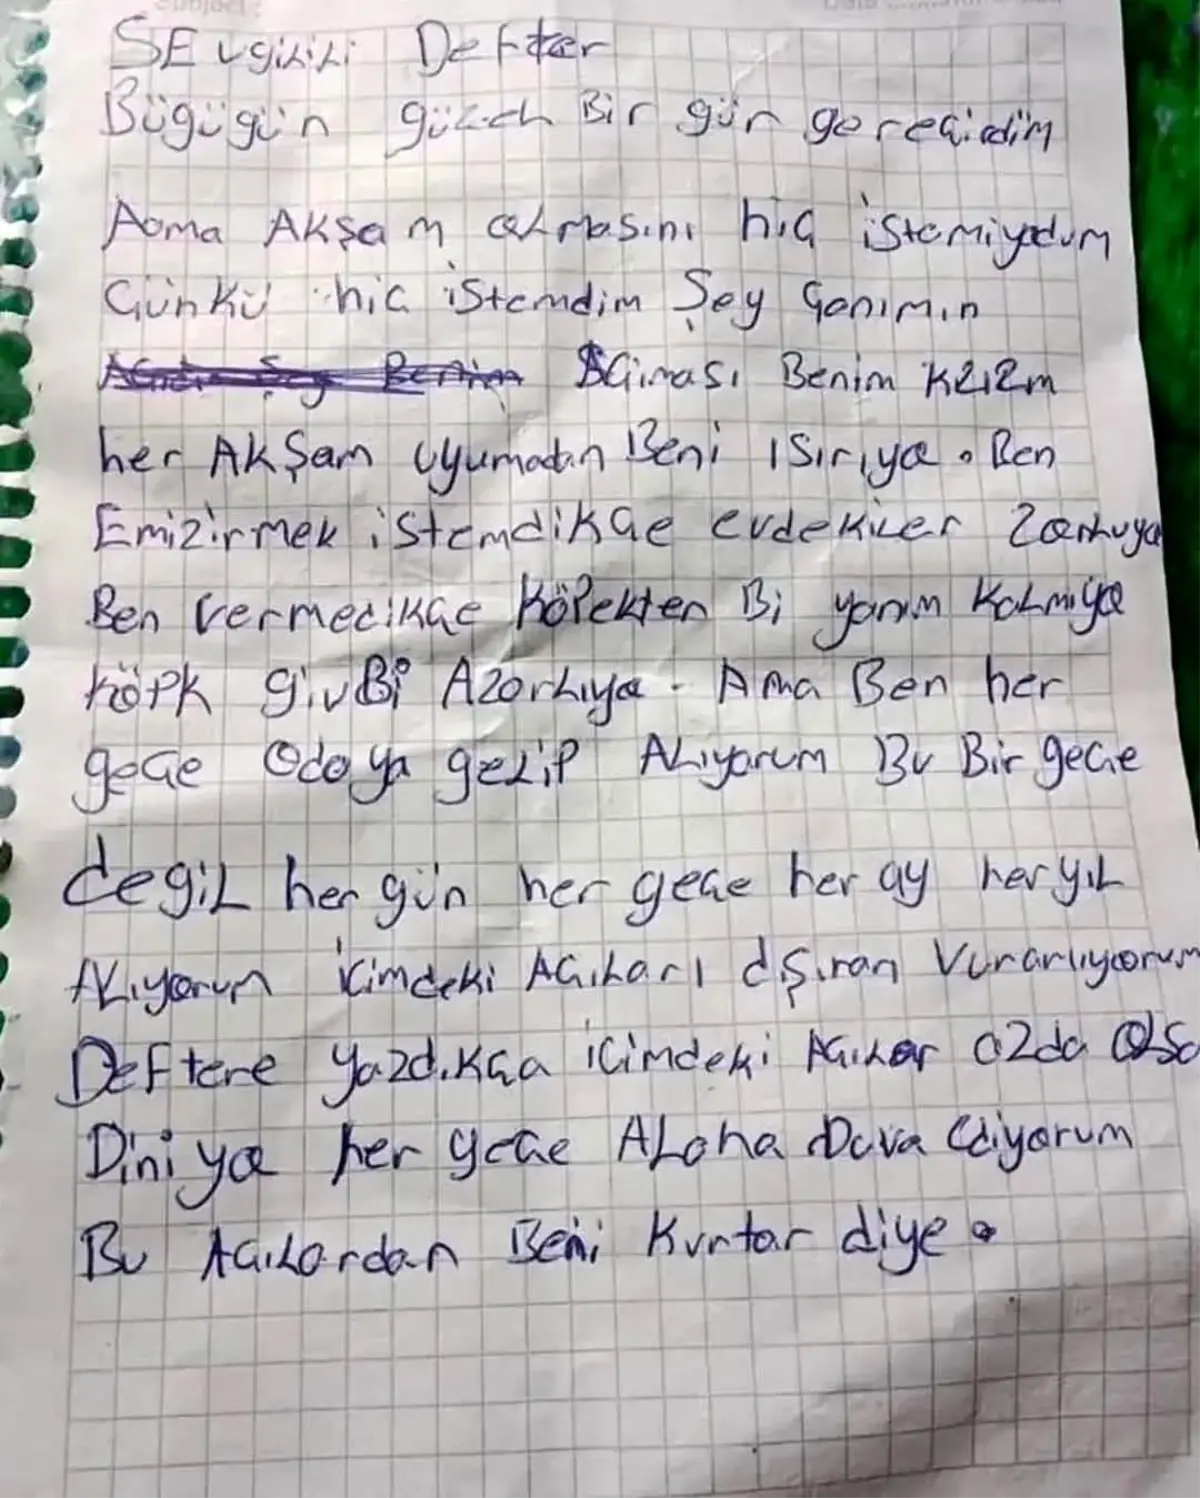 SEvgilili Defter
Bügügün güzel Bir gün gereçirdim
Aoma AKşam olmasını hiç istemiyodum
Günkü hic istemdim Şey Ganımın
Açıması Benim Kzızm
her AKŞam uyumadan Beni ısırıya. Ben
Emizirmek istemdikçe evdekiler Zorluya
Ben vermedikçe Köpekten Bi yanım Kalmıya
Köpk givBi Azorlıya. Ama Ben her
geçe Odoya gelip Alıyorum Bu Bir geçe
degil her gün her geçe her ay her yıl
Alıyorum içimdeki Açıları dşıran Vurarlıyorum
Deftere yazdıkça içimdeki Açılar azda Olsa
Diniya her geçe Aloha Duva Ediyorum
Bu Açılardan Beni Kurtar diye.